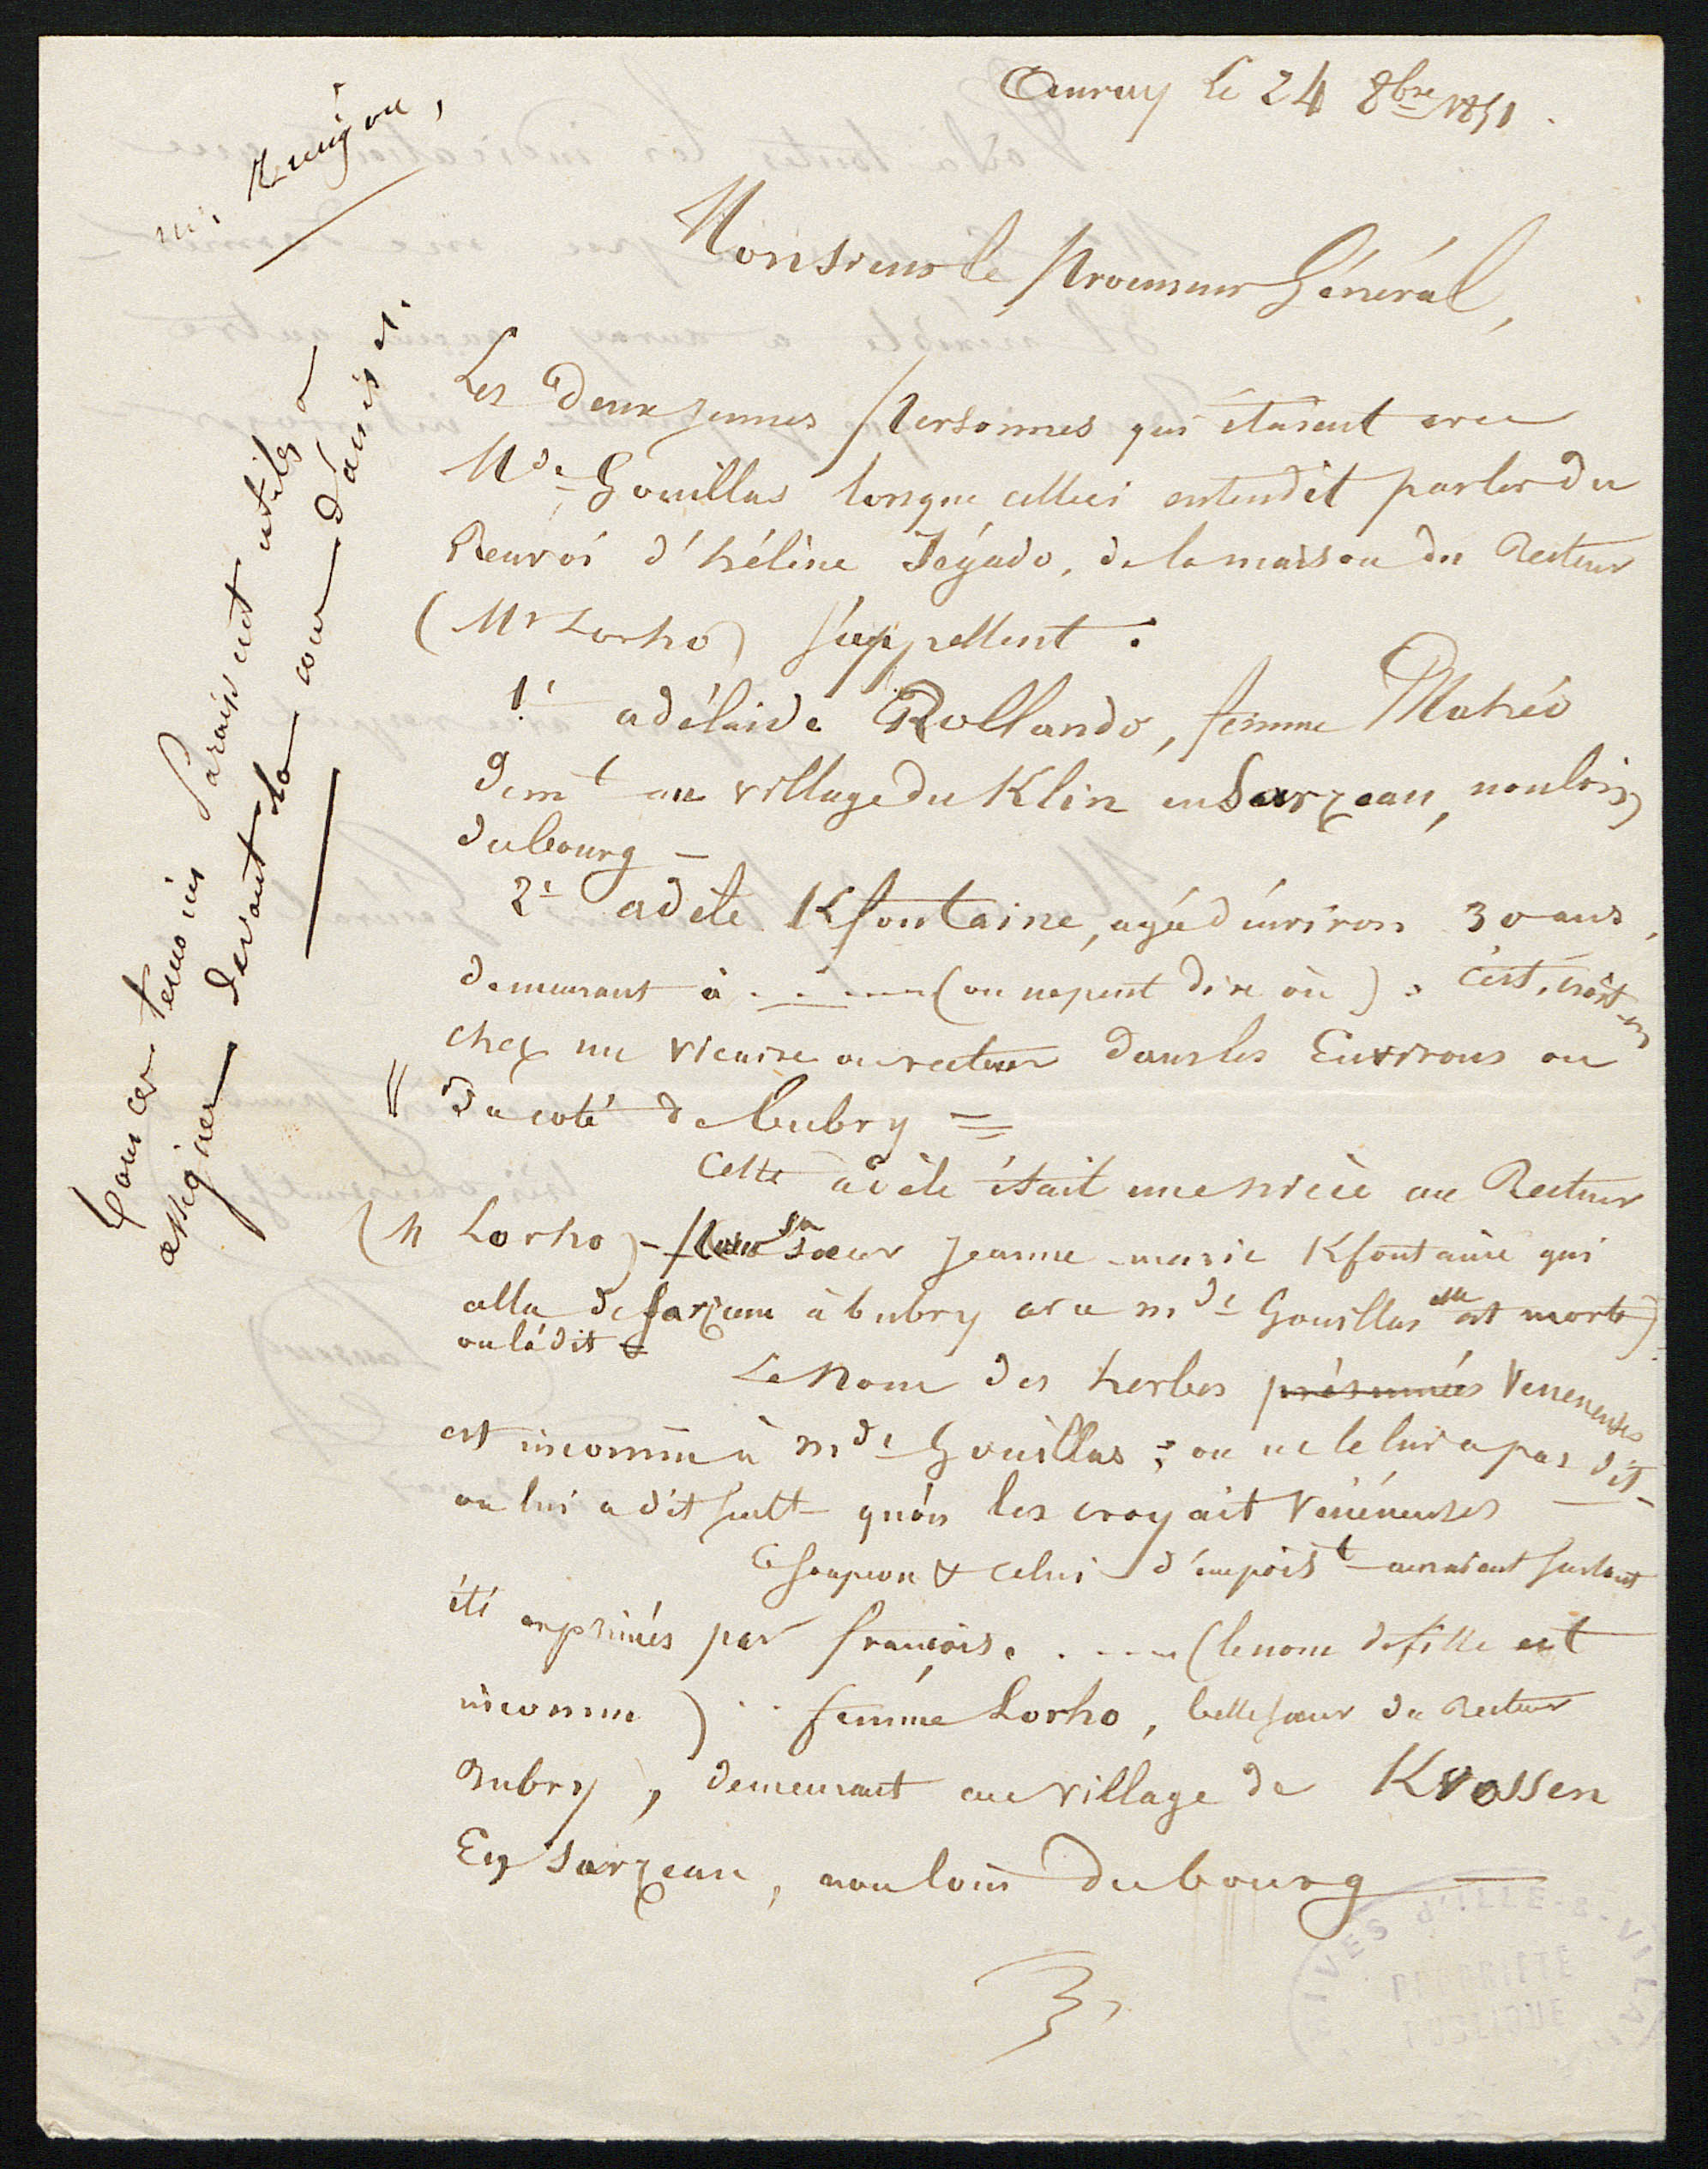 Auray le 24 8bre 1851.
Monsieur le Procureur Général,
Les deux jeunes personnes qui étaient avec
Mde Gouillas lorsque celleci entendit parler du
Renvoi d'hélène Jégado, de la maison du Recteur
(Mr Lorho) s'appellent :
1° adélaide Rollando, femme Mahéo
demt au village du Klin en Sarzeau, non loin
du bourg -
2° adèle Kfontaine, agée d'environ 30 ans,
demeurant à ...... (on ne peut dire où). C'est, croit-on
chez un vicaire ou recteur dans les Environs ou
du coté de bubry =
Cette adèle était une nièce au Recteur
(M Lorho) - sa soeur jeanne-marie Kfontaine qui
alla de Sarzeau à bubry avec mde Gouillas est morte)
on lédit
Le Nom des herbes présumées Veneneuses
est inconnu à mde Gouillas ; on ne le lui a pas dit -
on lui a dit sealt qu'on les croyait Vénéneuses
Ce soupçon & celui d'empoist auraient surtout
été exprimés par françoise ..... (le nom de fille est
inconnu) .. femme Lorho, belle soeur du Recteur
Bubry, demeurant au village de Kvossen
En Sarzeau, non loin du bourg —
Tous ces temoins Paraissent utiles à
assigner devant la cour d'assises.
ARCHIVES d'ILLE-&-VILAINE
PROPRIETE
PUBLIQUE